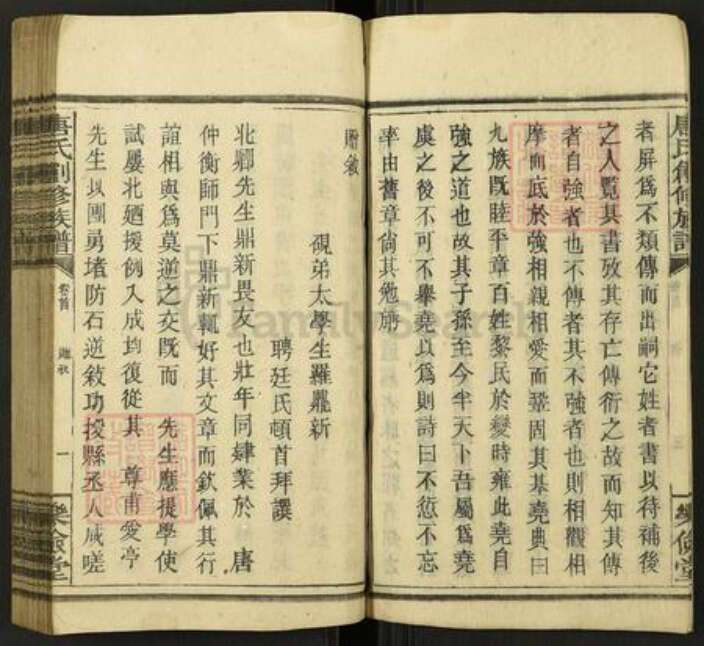 者屏爲不類傳而出嗣它姓者書以待補後
之人覽其書攷其存亡傳衍之故而知其傳
者自強者也不傳者其不強者也則相觀相
摩而底於強相親相愛而鞏固其基堯典曰
九族既睦平章百姓黎民於變時雍此堯自
強之道也故其子孫至今半天下吾屬爲堯
虞之後不可不舉堯以爲則詩曰不愆不忘
率由舊章尙其勉旃
贈敘
硯弟太學生羅鼎新
聘廷氏頓首拜譔
北卿先生鼎新畏友也壯年同肄業於 唐
仲衡師門下鼎新輒好其文章而欽佩其行
誼相與爲莫逆之交既而 先生應提學使
試屢北廼援例入成均復從其 尊甫愛亭
先生以團勇堵防石逆敘功授縣丞人咸嗟
唐氏創修族譜
卷首
一
樂儉堂
唐氏創修族譜
樂儉堂
FamilySearch